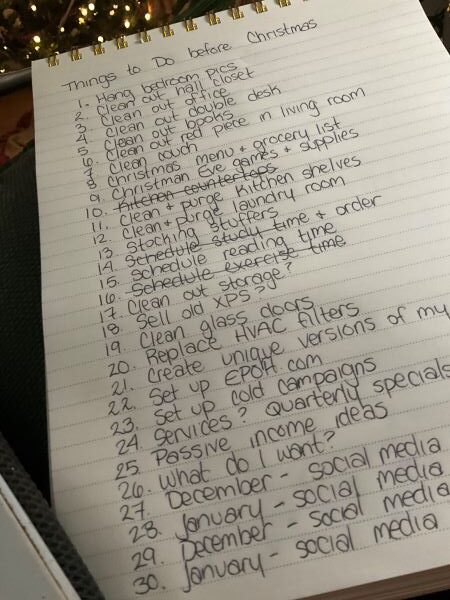 Things to Do before Christmas
1. Hang bedroom pics
2. Clean out hall closet
3. Clean out office
4. Clean out double desk
5. Clean out books
6. Clean out red piece in living room
7. Clean couch
8. Christmas menu + grocery list
9. Christman Eve games + supplies
10. Kitchen countertops
11. Clean + purge kitchen shelves
12. Clean + purge laundry room
13. Stocking stuffers
14. Schedule study time + order
15. Schedule reading time
16. Schedule exercise time
17. Clean out storage?
18. Sell old XPS?
19. Clean glass doors
20. Replace HVAC filters
21. Create unique versions of my
22. Set up EPOH.com
23. Set up cold campaigns
24. Services? Quarterly specials
25. Passive income ideas
26. What do I want?
27. December - social media
28. January - social media
29. December - social media
30. January - social media